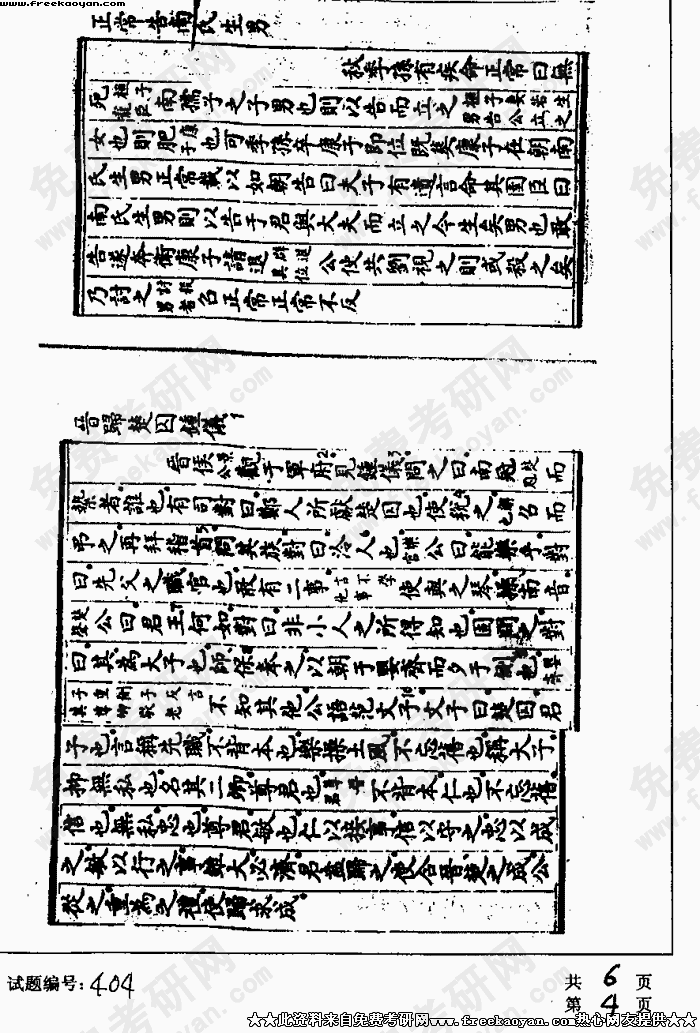 www.freekaoyan.com
正常告南氏生男
秋季孫有疾命正常曰無
死桓子寵臣南孺子之子男也則以告而立之桓子妻若生男告公立之
女也則肥康子也可季孫卒康子即位既葬康子在朝南
氏生男正常載以如朝告曰夫子有遺言命其圉臣曰
南氏生男則以告于君與大夫而立之今生矣男也敢
告遂奔衛康子請退辟其位退公使共劉視之則或殺之矣
乃討之討殺男者召正常正常不反
晉歸楚囚鍾儀1
晉侯景公觀于軍府2見鍾儀3問之曰南冠楚冠而
縶者誰也有司對曰鄭人所獻楚囚也使稅4之解也召而
弔之再拜稽首5問其族對曰冷人也樂官公曰能樂乎對
曰先父之職官也敢有二事言不學他事使與之琴操南音
楚聲公曰君王何如對曰非小人之所得知也固問之對
曰其為大子也師保奉之以朝于嬰齊而夕于側也嬰齊
子重側子反言其尊卿敬老不知其他公語范文子文子曰楚囚君
子也言稱先職不背本也樂操土風不忘舊也稱大子
抑無私也名其二卿尊君也尊晉君不背本仁也不忘舊
信也無私忠也尊君敏也仁以接事信以守之忠以成
之敏以行之事雖大必濟君盍歸之使合晉楚之成公
從之重為之禮使歸求成
试题编号:404
共 6 页
第 4 页
★★此资料来自免费考研网www.freekaoyan.com热心网友提供★★
免费考研网
www.freekaoyan.com